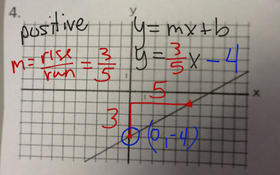 4.
positive
y = mx + b
m = rise/run = 3/5
y = 3/5 x - 4
y
x
5
3
(0, -4)